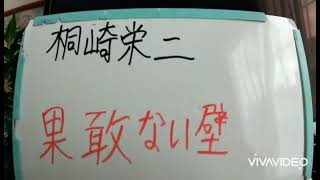 桐崎栄二
果敢ない壁
VIVAVIDEO